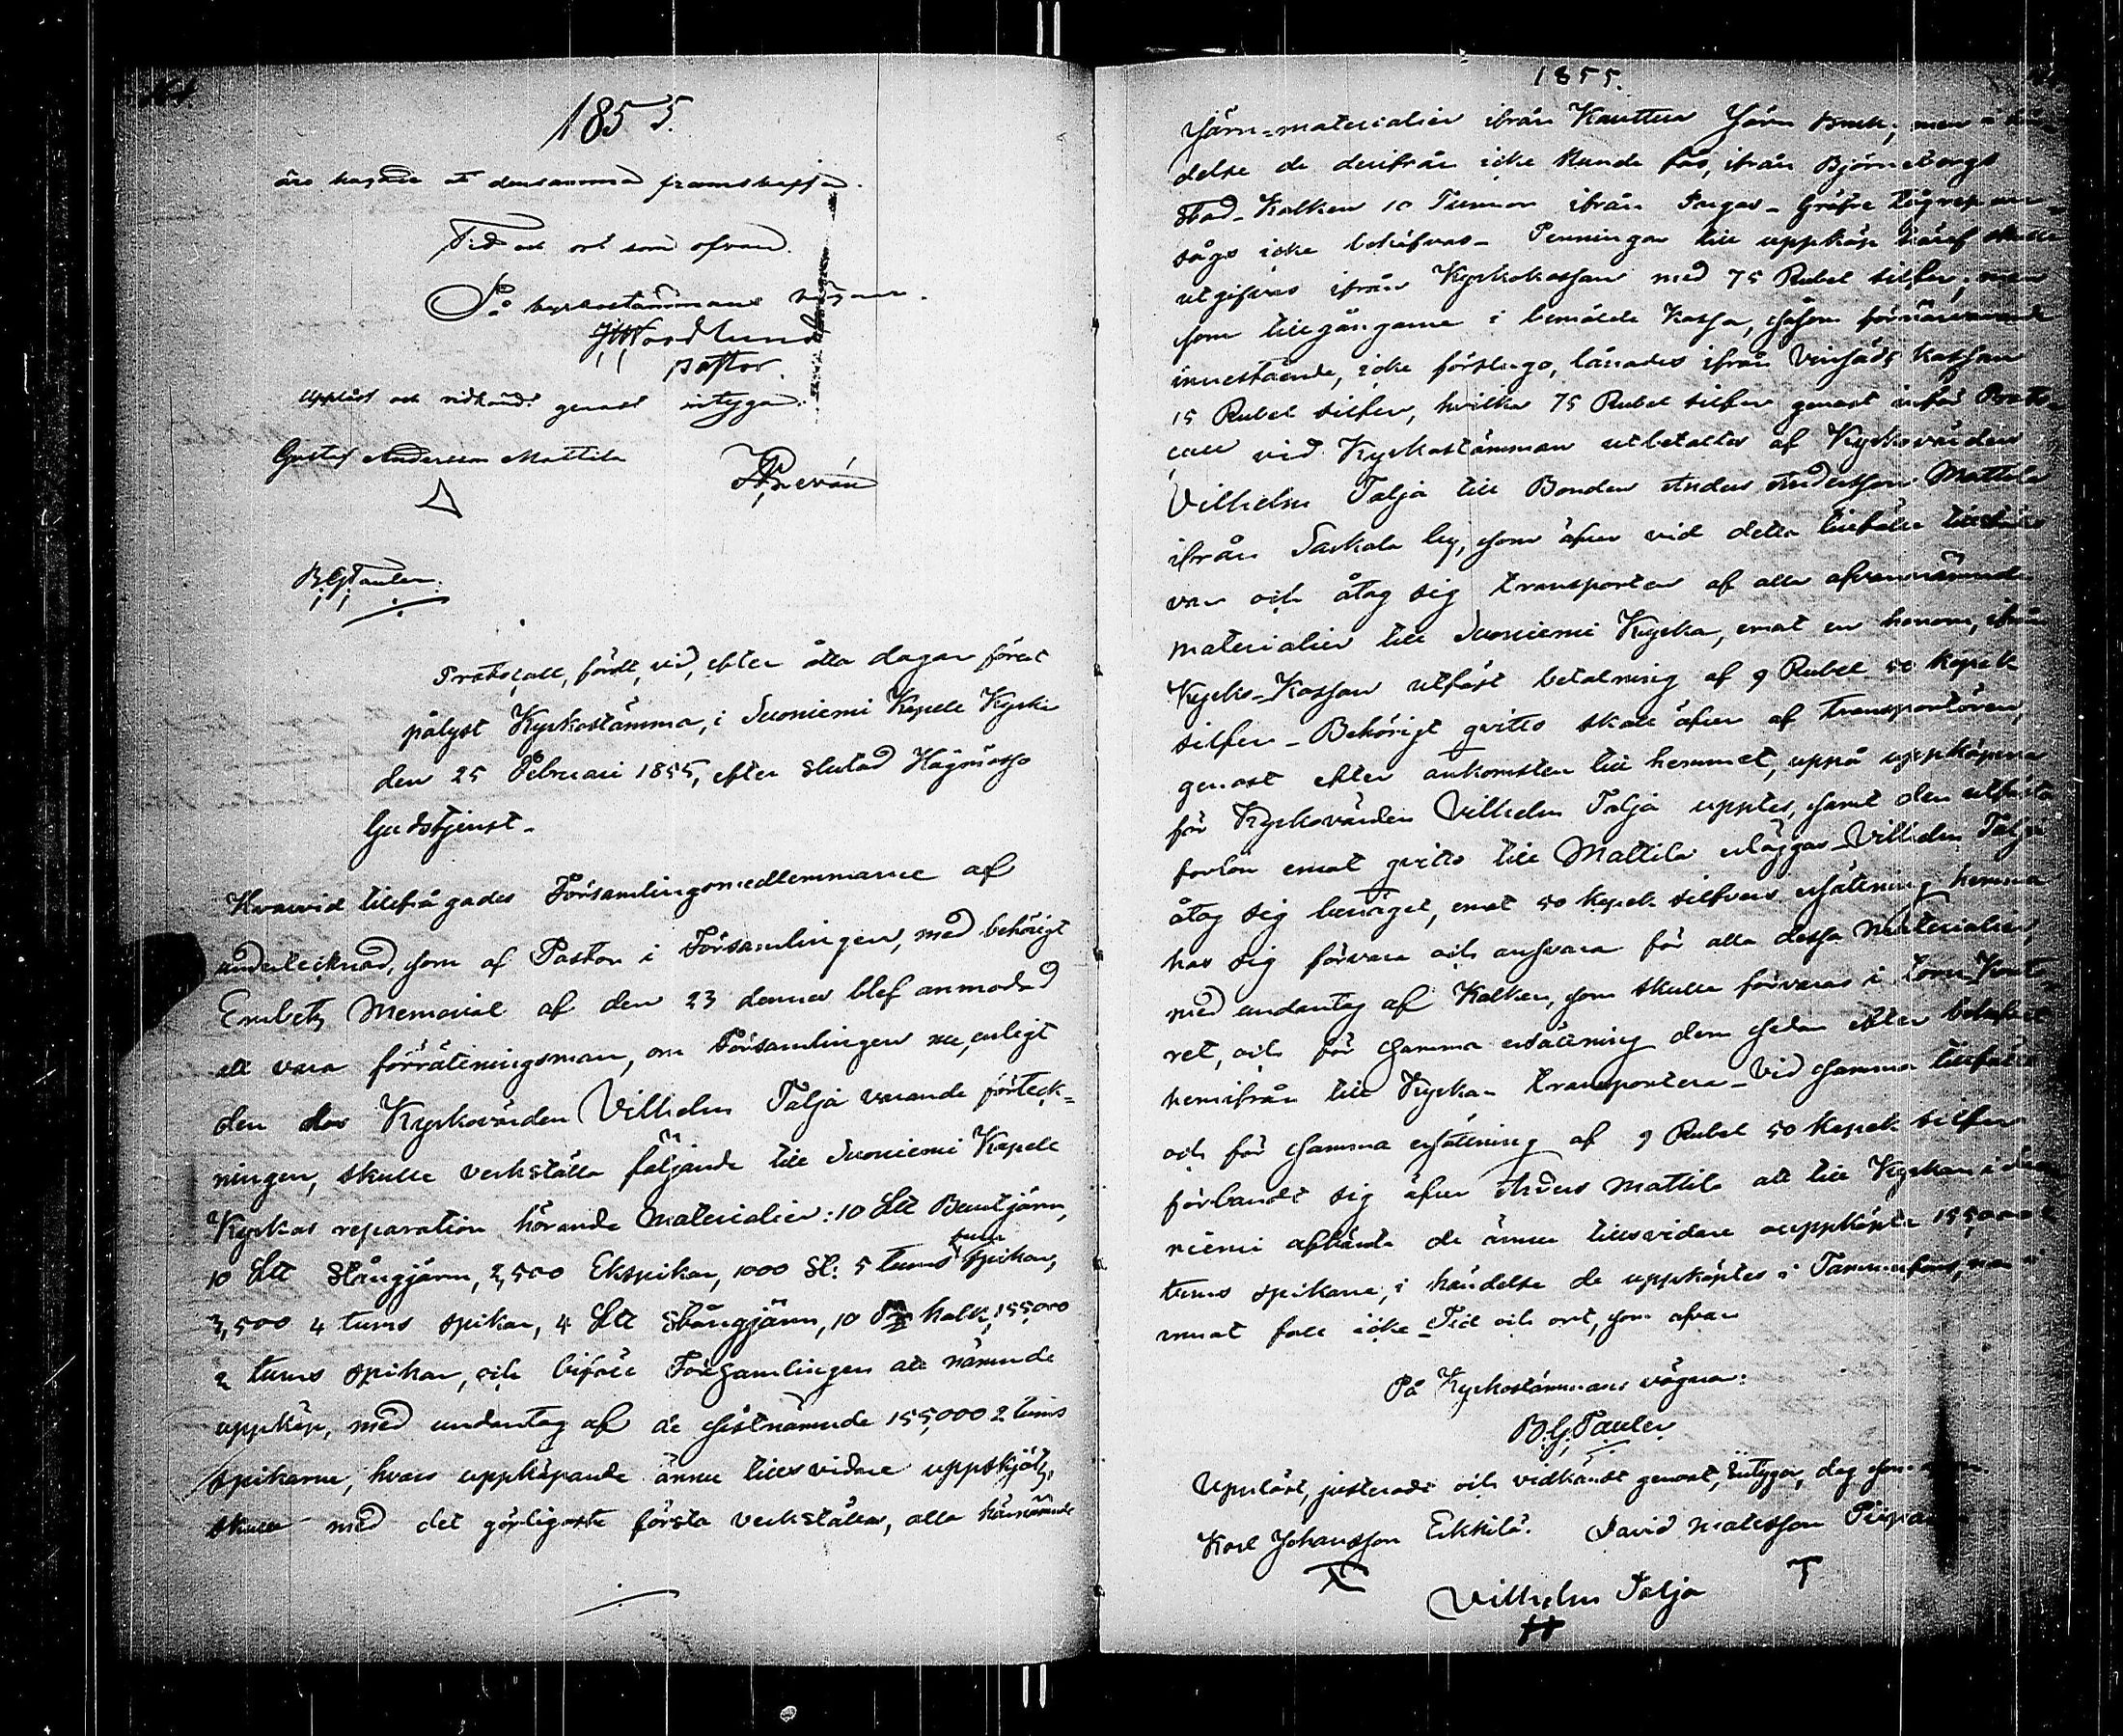 1855.
äro hagade at densamma framskaffa.
Tid och ort som ofvan.
På kyrkostämmans vägnar.
Nordlund
pastor.
Uppläst och vidkändt genast intyga.
Gustaf Andersson Mattila
B.G. Tauler.
Protocoll, fördt, vid, efter åtta dagar förut
pålyst Kyrkostämma, i Suoniemi Kapell Kyrka
den 25 Februari 1855, efter slutad Högmässo
Gudstjenst.
Hvarvid tillfrågades Församlingsmedlemmarne af
undertecknad, som af Pastor i Församlingen, med behörigt
Embets Memorial af den 23 dennes blef anmodad
att vara förrättningsman, om Församlingen nu, enligt
den hos Kyrkovärden Vilhelm Talja varande förteck=
ningen, skulle verkställa följande till Suoniemi Kapell
Kyrkas reparation hörande Materialier: 10 L℔ Bandjärn,
10 L℔ Stångjärn, 2,500 Ekspikar, 1000 St: 5 tums spikar,
3,500 4 tums spikar, 4 L℔ Stångjärn, 10 Tnr kalk, 155,000
2 tums spikar, och biföll Församlingen att nämnde
uppköp, med undantag af de sistnämnde 155,000 2 tums
spikarne, hvars uppköpande ännu tillsvidare uppskjöts,
skulle med det görligaste första verkställas, alla härnämnde
1855.
Järn=materialier ifrån Kauttua Järn Bruk; men i hän
delse de derifrån icke kunde fås, ifrån Björneborgs
Stad - Kalken 10 Tunnor ifrån Pargas -
sågs icke behöfvas - Penningar till uppköp häraf skulle
utgifvas ifrån Kyrkokassan med 75 Rubel silfver; men
som tillgångarne i bemälde Kassa, såsom förnärvarande
innestående, icke förslego, lånades ifrån Vinsäds kassan
15 Rubel silfver, hvilka 75 Rubel silfver genast inför Proto-
coll vid Kyrkostämman utbetaltes af Kyrkovärden
Vilhelm Talja till Bonden Anders Andersson Mattila
ifrån Sarkola by, som äfven vid detta tillfälle tillstädes
var och åtog sig transporten af alla ofvannämnde
materialier till Suoniemi Kyrka, emot en honom, ifrån
Kyrko-Kassan utfäst betalning af 9 Rubel 50 kopek
silfver - Behörigt qvitto skall äfven af transportören,
genast efter ankomsten till hemmet, uppå uppköpena
för Kyrkovärden Vilhelm Talja upptes, samt den utfästa
forlön emot qvitto till Mattila erläggas - Vilhelm Talja
åtog sig benäget, emot 50 kopek silfvers ersättning hemma
hos sig förvara och ansvara för alla dessa Materialier,
med undantag af Kalken, som skulle förvaras i
ret, och för samma ersättning dem sedan efter behofvet
hemifrån till Kyrkan transportera - Vid samma tillfälle
och för samma ersättning af 9 Rubel 50 kopek silfver
förbandt sig äfven Anders Mattila att till Kyrkan i Suo
niemi afhämta de ännu tillsvidare ouppköpta 155,000 2
tums spikarne, i händelse de uppköptes i Tammerfors, men i
annat fall icke - Tid och ort, som ofvan
På Kyrkostämmans vägnar:
B.G. Tauler
Uppläst, justeradt och vidkändt genast, intyga, dag som ofvan.
Karl Johansson Erkkilä. David Matsson
Vilhelm Talja